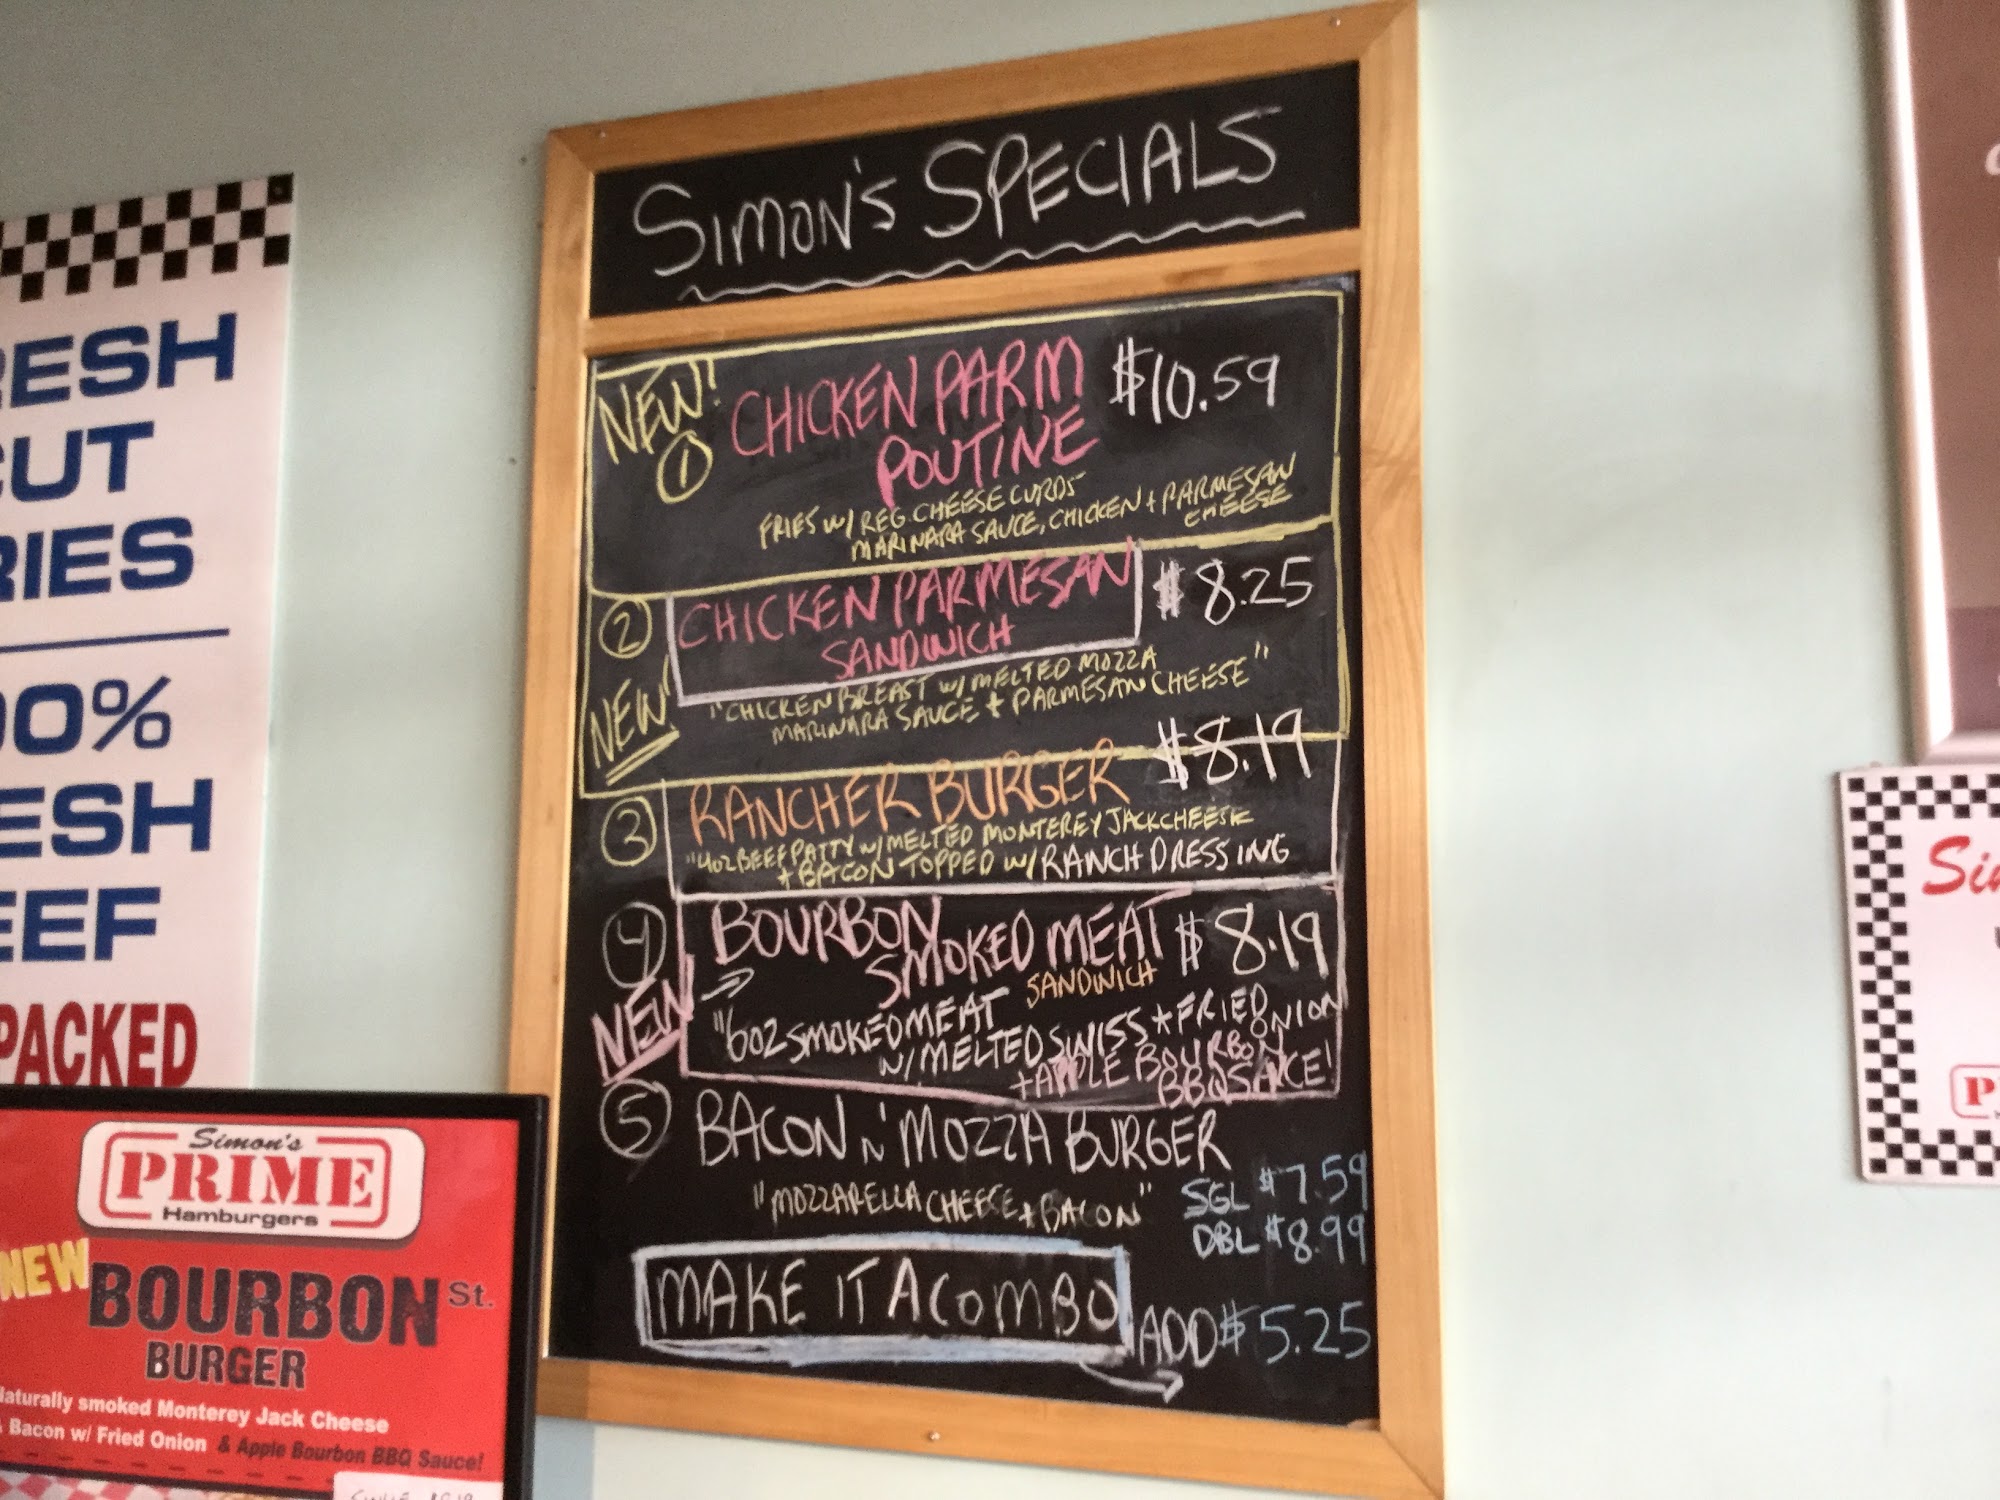 SIMON'S SPECIALS
NEW!
① CHICKEN PARM $10.59
POUTINE
FRIES W/ REG. CHEESE CURDS
MARINARA SAUCE, CHICKEN + PARMESAN
CHEESE
② CHICKEN PARMESAN $8.25
SANDWICH
NEW!
"CHICKEN BREAST W/ MELTED MOZZA
MARINARA SAUCE + PARMESAN CHEESE"
③ RANCHER BURGER $8.19
"4OZ BEEF PATTY W/ MELTED MONTEREY JACK CHEESE
+ BACON TOPPED W/ RANCH DRESSING
④ BOURBON
SMOKED MEAT $8.19
SANDWICH
NEW
"6OZ SMOKED MEAT
W/ MELTED SWISS + FRIED
ONION
+ APPLE BOURBON
BBQ SAUCE!
⑤ BACON N' MOZZA BURGER
"MOZZARELLA CHEESE + BACON"
SGL $7.59
DBL $8.99
MAKE IT A COMBO ADD $5.25
RESH
CUT
RIES
00%
ESH
EEF
PACKED
Simon's
PRIME
Hamburgers
NEW
BOURBON St.
BURGER
Naturally smoked Monterey Jack Cheese
& Bacon w/ Fried Onion & Apple Bourbon BBQ Sauce!
Sim
P